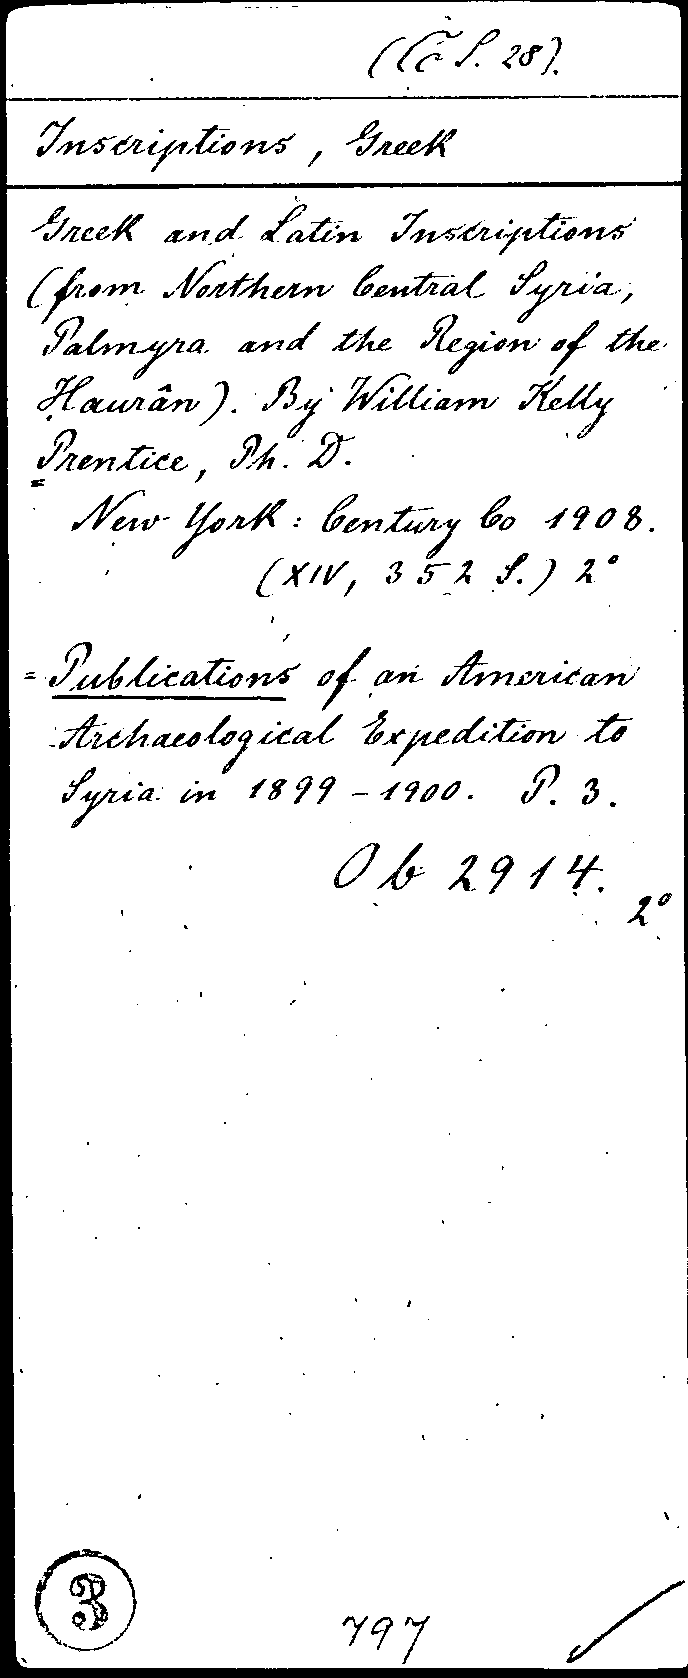 S. 28).
Inscriptions, Greek
Greek and Latin Inscriptions
(from Northern Central Syria,
Palmyra and the Region of the
Ḥaurân). By William Kelly
Prentice, Ph. D.
New York: Century Co 1908.
(XIV, 352 S.) 2°
= Publications of an American
Archaeological Expedition to
Syria in 1899-1900. P. 3.
Ob 2914.
2°
3
797